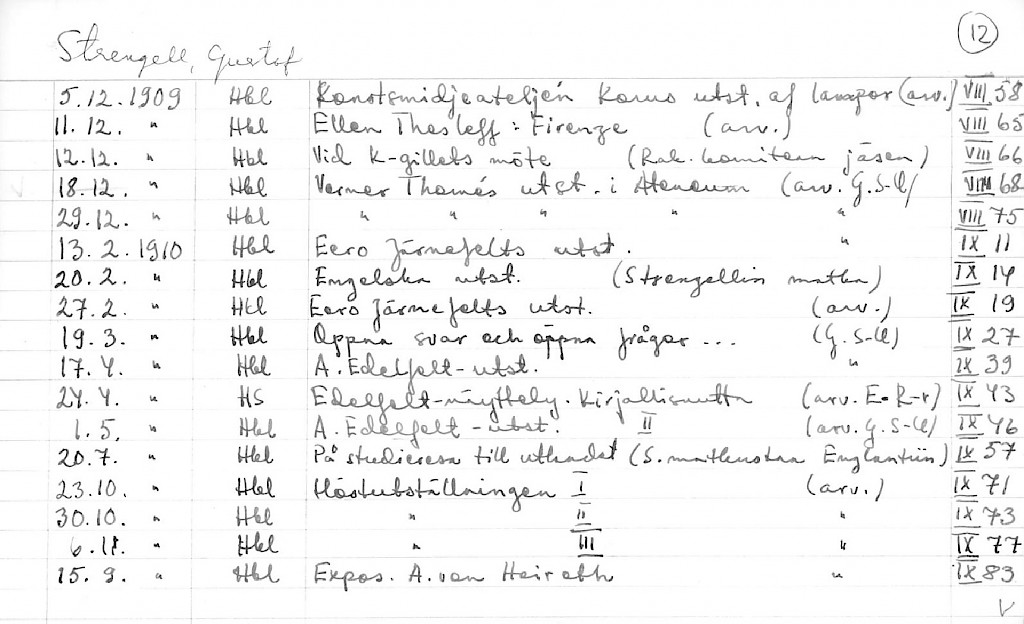 12
Strengell, Gustof
5.12.1909 Hbl Konstsmidjeateljén Korus utst. af lampor (arv.) VIII 58
11.12. " Hbl Ellen Thesleff: Firenze (arv.) VIII 65
12.12. " Hbl Vid K-gillets möte (Rak. komitean jäsen) VIII 66
18.12. " Hbl Verner Thomés utst. i Ateneum (arv. G.S-ll) VIII 68
29.12. " Hbl " " " " " VIII 75
13.2.1910 Hbl Eero Järnefelts utst. " IX 11
20.2. " Hbl Engelska utst. (Strengellin matka) IX 14
27.2. " Hbl Eero Järnefelts utst. (arv.) IX 19
19.3. " Hbl Öppna svar och öppna frågor ... (G.S-ll) IX 27
17.4. " Hbl A. Edelfelt-utst. " IX 39
24.4. " HS Edelfelt-näyttely. Kirjallisuutta (arv. E.R-r) IX 43
1.5. " Hbl A. Edelfelt-utst. II (arv. G.S-ll) IX 46
20.7. " Hbl På studieresa till utlandet (S. matkustaa Englantiin) IX 57
23.10. " Hbl Höstutställningen I (arv.) IX 71
30.10. " Hbl " II " IX 73
6.11. " Hbl " III " IX 77
15.9. " Hbl Expos. A. von " IX 83
V